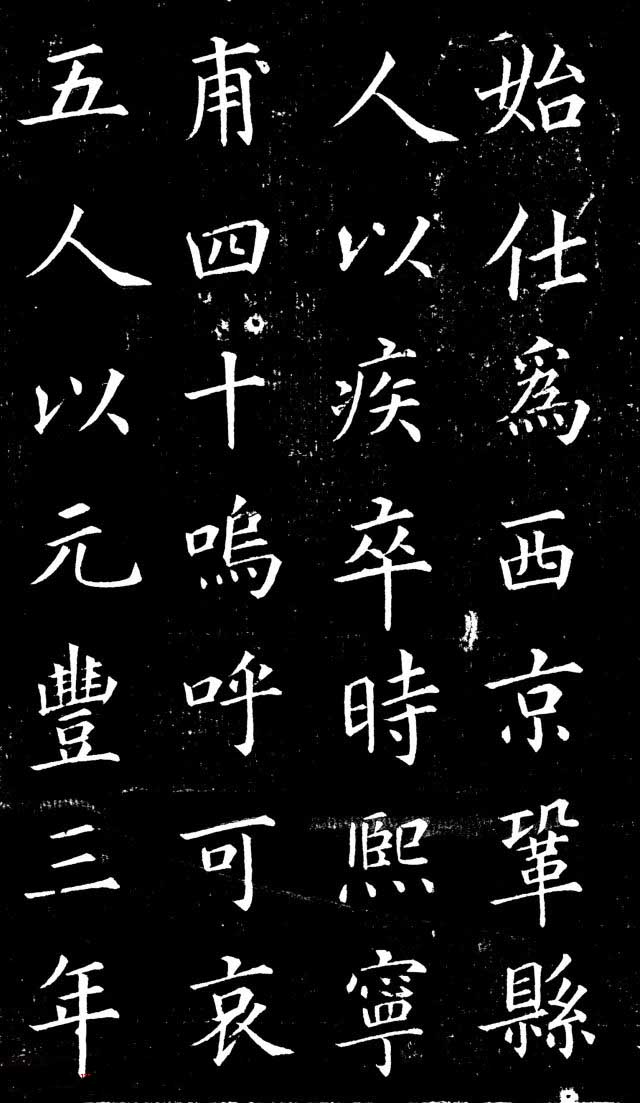 始仕為西京鞏縣
人以疾卒時熙寧
甫四十嗚呼可哀
五人以元豐三年